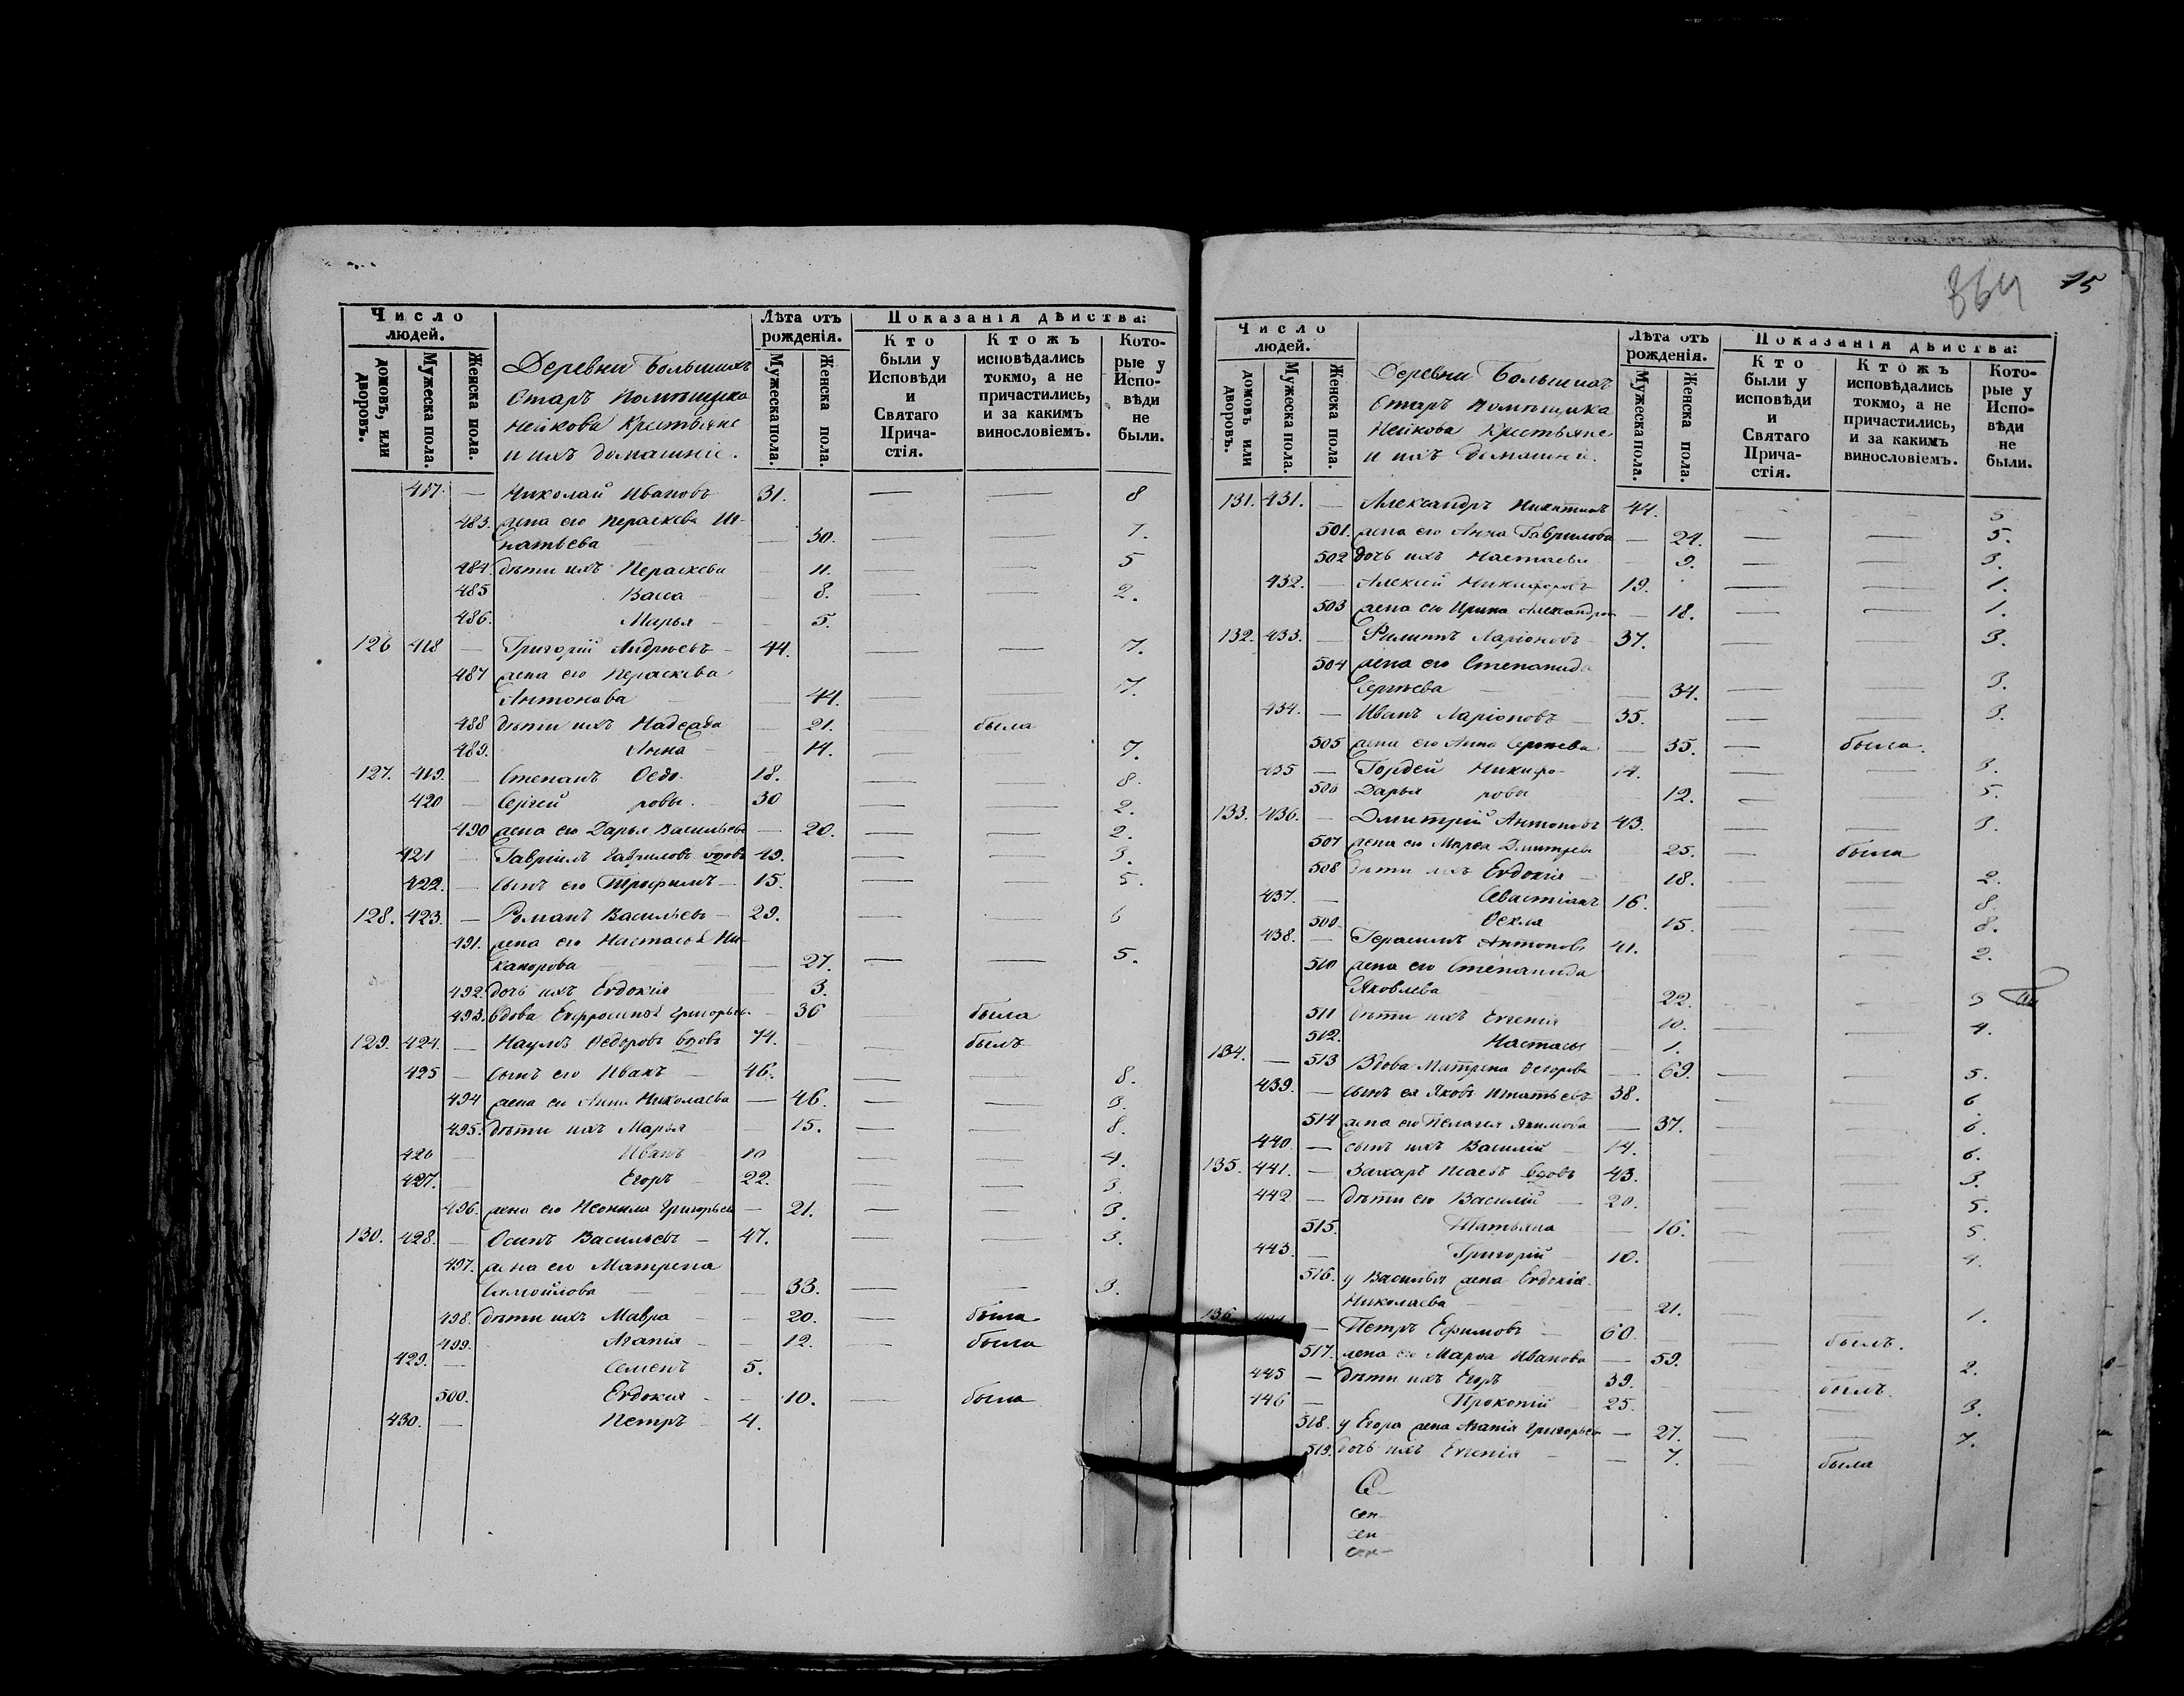 364 75
Число людей.
домовъ, или дворовъ. Мужеска пола. Женска пола.
Деревни Большихъ
Старъ Помѣщика
Нейкова Крестьяне
и ихъ домашніе.
Лѣта отъ рожденія.
Мужеска пола. Женска пола.
Показанія дѣйства:
Кто были у Исповѣди и Святаго Прича-стія.
Ктожъ исповѣдались токмо, а не причастились, и за какимъ винословіемъ.
Кото-рые у Испо-вѣди не были.
417. — Николай Ивановъ 31. — — 8
483. жена его Параскева Иг-
натьева — 30. — — 7.
484. дѣти ихъ Параскева — 11. — — 5
485 Васса — 8. — — 2.
486. Марья — 5.
126 418 — Григорій Андреевъ — 44. — — 7.
487 жена его Параскева
Антонова — 44. — 7.
488 дѣти ихъ Надежда — 21. — была
489. Анна — 14. — — 7.
127. 419. — Степанъ Ѳедо- 18. — — 8.
420 — Сергей ровы. 30 — — 2.
490 жена его Дарья Васильева — 20. — — 2.
421 — Гавріилъ Гавриловъ вдовъ 49. — — 3.
422. — сынъ его Трофимъ — 15. — — 5.
128. 423. — Романъ Васильевъ — 29. — — 6
491. жена его Настасья Ни-
канорова — 27. — — 5.
492. дочь ихъ Евдокія — 3.
493. вдова Евфросинья Григорьев. — 36 — была
129. 424. — Наумъ Ѳедоровъ вдовъ 74. — былъ
425 — сынъ его Иванъ — 46. — — 8.
494 жена его Анна Николаева — 46. — — 3.
495. дѣти ихъ Марья — 15. — — 8.
426 — Иванъ 10 — — 4.
427. — Егоръ — 22. — — 3.
496. жена его Неонила Григорьев — 21. — — 3.
130. 428. — Осипъ Васильевъ — 47. — — 3.
497. жена его Матрена
Самойлова — 33. — — 3.
498. дѣти ихъ Мавра — 20. — была
499. Агапія — 12. — была
429. — Семенъ 5.
500. Евдокия — 10. — была
430. — Петръ — 4.
Число людей.
домовъ или дворовъ. Мужеска пола. Женска пола.
Деревни Большихъ
Старъ Помѣщика
Нейкова Крестьяне
и ихъ домашніе.
Лѣта отъ рожденія.
Мужеска пола. Женска пола.
Показанія дѣйства:
Кто были у исповѣди и Святаго Прича-стія.
Ктожъ исповѣдались токмо, а не причастились, и за какимъ винословіемъ.
Кото-рые у Испо-вѣди не были.
131. 431. — Александръ Никитинъ 44. — — 5
501. жена его Анна Гаврилова — 24. — — 5.
502 дочь ихъ Настасья — 9. — — 3.
432. — Алексій Никифоровъ 19. — — 1.
503 жена его Ирина Александров — 18. — — 1.
132. 433. — Филиппъ Ларіоновъ 37. — — 3.
504 жена его Степанида
Сергѣева — 34. — — 3.
434. — Иванъ Ларіоновъ — 35. — — 3.
505 жена его Анна Сергѣева — 35. — была.
435 — Гордей Никифо- 14. — — 3.
506 Дарья ровы 12. — — 5.
133. 436. — Дмитрій Антоновъ 43. — — 3.
507 жена его Марѳа Дмитрев 25. — была
508 дѣти ихъ Евдокія — 18. — — 2.
437. — Севастіанъ 16. — — 8.
509. Ѳекла 15. — — 8.
438. — Герасимъ Антоновъ 41. — — 2.
510 жена его Степанида
Яковлева — 22. — — 3
511 дѣти ихъ Евгенія 10. — — 4.
512. Настасья — 1.
134. — 513 Вдова Матрена Ѳегорова — 69. — — 5.
439. — сынъ ея Яковъ Игнатьевъ 38. — — 6
514 жена его Пелагія Якимова — 37. — — 6.
440 — сынъ ихъ Василій — 14. — — 6.
135. 441. — Захаръ Исаевъ вдовъ 43. — — 3.
442 — дѣти его Василій — 20. — — 5.
515. Татьяна — 16. — — 5.
443. — Григорій — 10. — — 4.
516. у Василья жена Евдокія
Николаева — 21. — — 1.
136. 444 — Петръ Ефимовъ — 60. — былъ.
517. жена его Марѳа Иванова — 59. — — 2.
445 — дѣти ихъ Егоръ 39. — былъ.
446 — Прокопій — 25. — — 3.
518. у Егора жена Агапія Григорьев — 27. — — 7.
519. дочь ихъ Евгенія — 7. — была
С
сен-
сен-
сен-